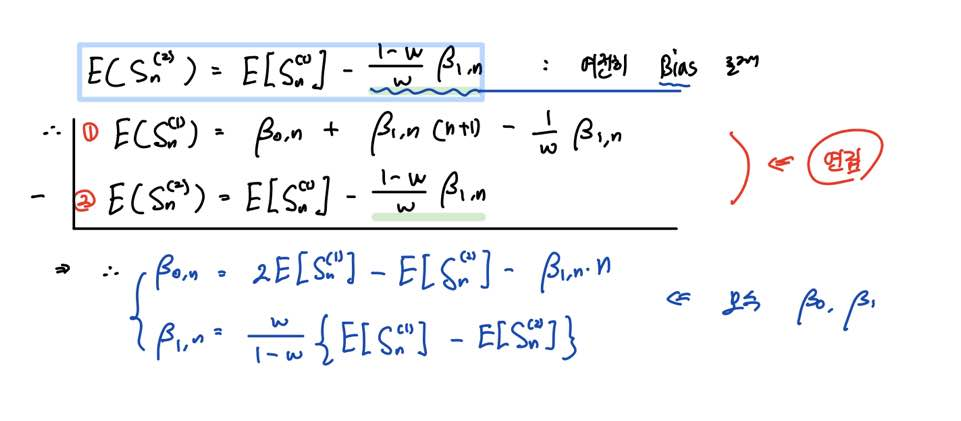 E(Sₙ⁽²⁾) = E[Sₙ⁽¹⁾] - (1-w)/w β₁,ₙ : 여전히 Bias 존재
∴ ① E(Sₙ⁽¹⁾) = β₀,ₙ + β₁,ₙ (n+1) - 1/w β₁,ₙ
- ② E(Sₙ⁽²⁾) = E[Sₙ⁽¹⁾] - (1-w)/w β₁,ₙ ⇐ 연립
⇒ ∴ { β₀,ₙ = 2E[Sₙ⁽¹⁾] - E[Sₙ⁽²⁾] - β₁,ₙ·n
β₁,ₙ = w/(1-w) {E[Sₙ⁽¹⁾] - E[Sₙ⁽²⁾]} ⇐ β₀, β₁